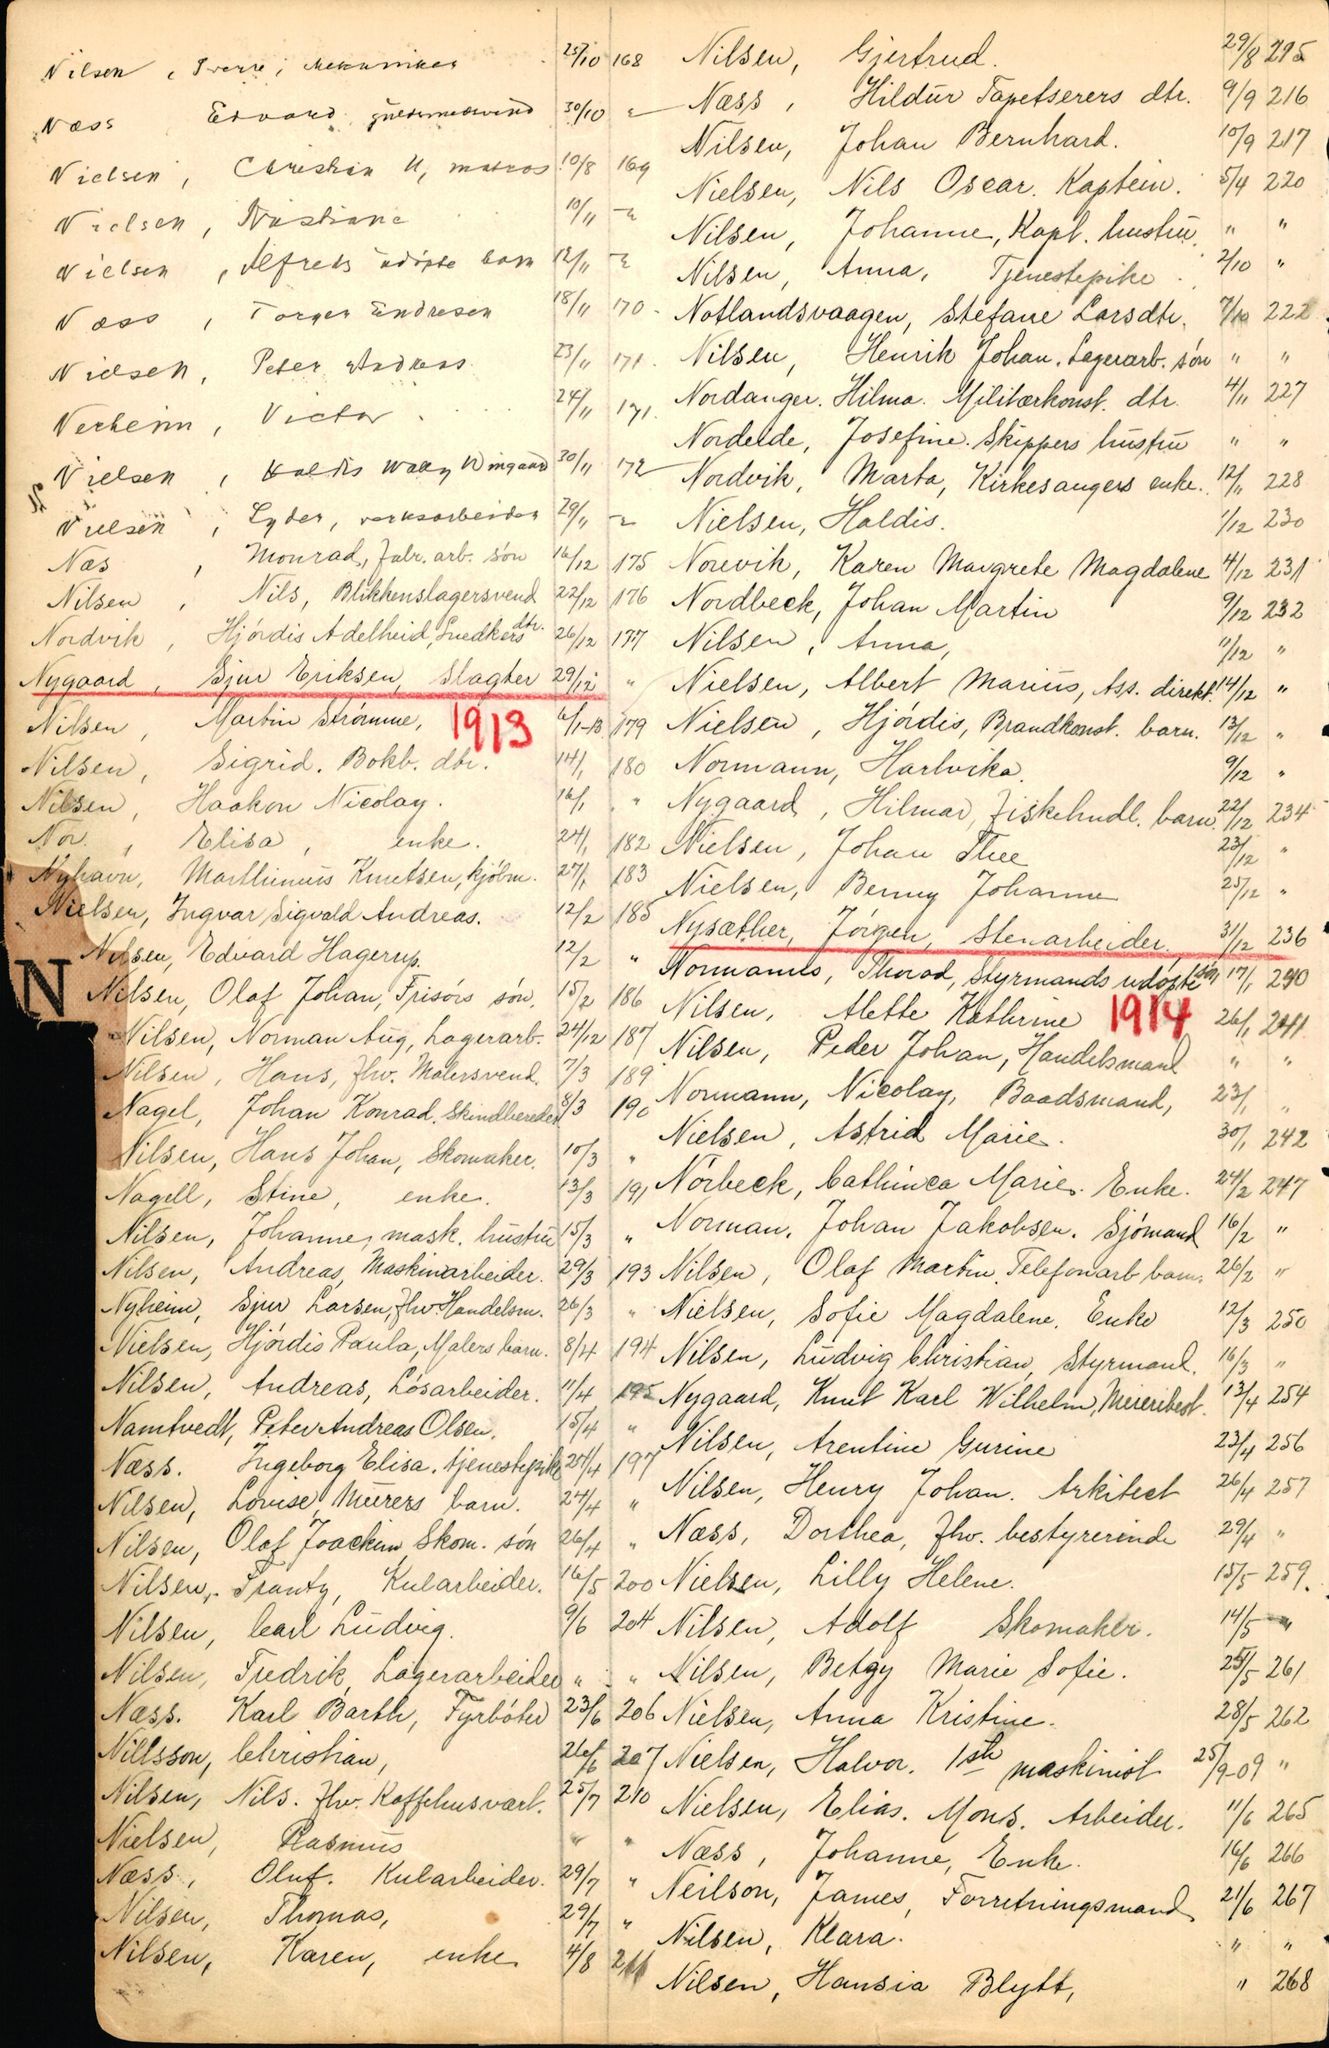 Nilsen, Sverre, Mekaniker 25/10 168
Næss Edvard, guldsmedsvend 30/10 "
Nielsen, Christian U, matros 10/8 169
Nielsen, Kristiane 10/11 "
Nielsen, Alfreds udöpte barn 12/11 "
Næss, Torger Endresen 18/11 170
Nielsen, Peter Andreas 23/11 171
Nerheim, Victor 24/11 171
Nielsen, Haldis Wally Wingaard 30/11 172
Nielsen, Lyder, verksarbeider 29/11 "
Næs, Monrad, Fabr. arb. sön 16/12 175
Nilsen, Nils, Blikkenslagersvend 22/12 176
Nordvik, Hjördis Adelheid, Snedkers dtr. 26/12 177
Nygaard, Sjur Eriksen, Slagter 29/12 "
1913
Nilsen, Martin Strømme, 6/1-13 179
Nilsen, Sigrid. Bokb. dtr. 14/1 180
Nilsen, Haakon Nicolay. 16/1 "
Nor, Elisa, enke. 24/1 182
Nyhavn, Marthinius Knutsen, kjöbm. 27/1 183
Nielsen, Ingvar Sigvald Andreas. 12/2 185
Nilsen, Edvard Hagerup. 12/2 "
N
Nilsen, Olaf Johan, Frisörs sön. 15/2 186
Nilsen, Norman Aug, Lagerarb. 24/12 187
Nilsen, Hans, Fhv. Malersvend. 7/3 189
Nagel, Johan Konrad. Skindbereder 8/3 190
Nilsen, Hans Johan, Skomaker. 10/3 "
Nagell, Stine, enke. 13/3 191
Nilsen, Johanne, mask. hustru 15/3 "
Nilsen, Andreas, Maskinarbeider. 29/3 193
Nyheim, Sjur Larsen, Fhv. Handelsm. 26/3 "
Nielsen, Hjördis Paula, Malers barn. 8/4 194
Nilsen, Andreas, Lösarbeider. 11/4 195
Namtvedt, Peter Andreas Olsen. 15/4 "
Næss. Ingeborg Elisa. tjenestepike 25/4 197
Nilsen, Lovise, Murers barn. 24/4 "
Nilsen, Olaf Joachim Skom. sön 26/4 "
Nilsen, Frantz, Kularbeider. 16/5 200
Nilsen, Carl Ludvig. 9/6 204
Nilsen, Fredrik, Lagerarbeider " "
Næss. Karl Barth, Fyrböter 23/6 206
Nillsson, Christian, 26/6 207
Nilsen, Nils. Fhv. Kaffehusvært. 25/7 210
Nielsen, Rasmus " "
Næss, Oluf. Kularbeider. 29/7 "
Nilsen, Thomas, 29/7 "
Nilsen, Karen, enke 4/8 211
Nilsen, Gjertrud. 29/8 215
Næss, Hildur Tapetserers dtr. 9/9 216
Nilsen, Johan Bernhard. 10/9 217
Nielsen, Nils Oscar. Kaptein. 5/4 220
Nilsen, Johanne, Kapt. hustru. " "
Nilsen, Anna, Tjenestepike 2/10 "
Notlandsvaagen, Stefane Larsdtr. 7/10 222
Nilsen, Henrik Johan. Lagerarb. sön " "
Nordanger. Hilma. Militærkonst. dtr. 4/11 227
Nordeide, Josefine. Skippers hustru " "
Nordvik, Marta, Kirkesangers enke. 12/11 228
Nielsen, Haldis. 1/12 230
Norevik, Karen Margrete Magdalene 4/12 231
Nordbeck, Johan Martin 9/12 232
Nilsen, Anna, 11/12 "
Nielsen, Albert Marius, Ass. direkt. 14/12 "
Nielsen, Hjördis, Brandkonst. barn. 13/12 "
Normann, Hartvika. 9/12 "
Nygaard, Hilmar, Fiskehndl. barn. 22/12 234
Nielsen, Johan Thee 23/12 "
Nielsen, Benny Johanne 25/12 "
Nysæther, Jörgen, Stenarbeider. 31/12 236
Normanns, Thorod, Styrmands udöpte sön, 17/1 240
1914
Nilsen, Alette Kathrine 26/1 241
Nilsen, Peder Johan, Handelsmand " "
Normann, Nicolay, Baadsmand, 23/1 "
Nielsen, Astrid Marie. 30/1 242
Nörbeck, Cathinca Marie. Enke. 24/2 247
Norman. Johan Jakobsen. Sjömand 16/2 "
Nilsen, Olaf Martin. Telefonarb barn. 26/2 "
Nielsen, Sofie Magdalene. Enke 12/3 250
Nilsen, Ludvig Christian, Styrmand. 16/3 "
Nygaard, Knut Karl Wilhelm, Meieribest. 13/4 254
Nilsen, Arentine Gurine 23/4 256
Nilsen, Henry Johan. Arkitect 26/4 257
Næss, Dorthea, Fhv. bestyrerinde 29/4 "
Nielsen, Lilly Helene. 15/5 259.
Nilsen, Adolf Skomaker. 14/5 "
Nilsen, Betzy Marie Sofie. 25/5 261
Nielsen, Anna Kristine. 28/5 262
Nielsen, Halvor. 1ste maskinist 25/9-09 "
Nielsen, Elias. Mons. Arbeider. 11/6 265
Næss, Johanne, Enke. 16/6 266
Neilson, James, Forretningsmand 21/6 267
Nilsen, Klara. " "
Nilsen, Hansia Blytt, " 268